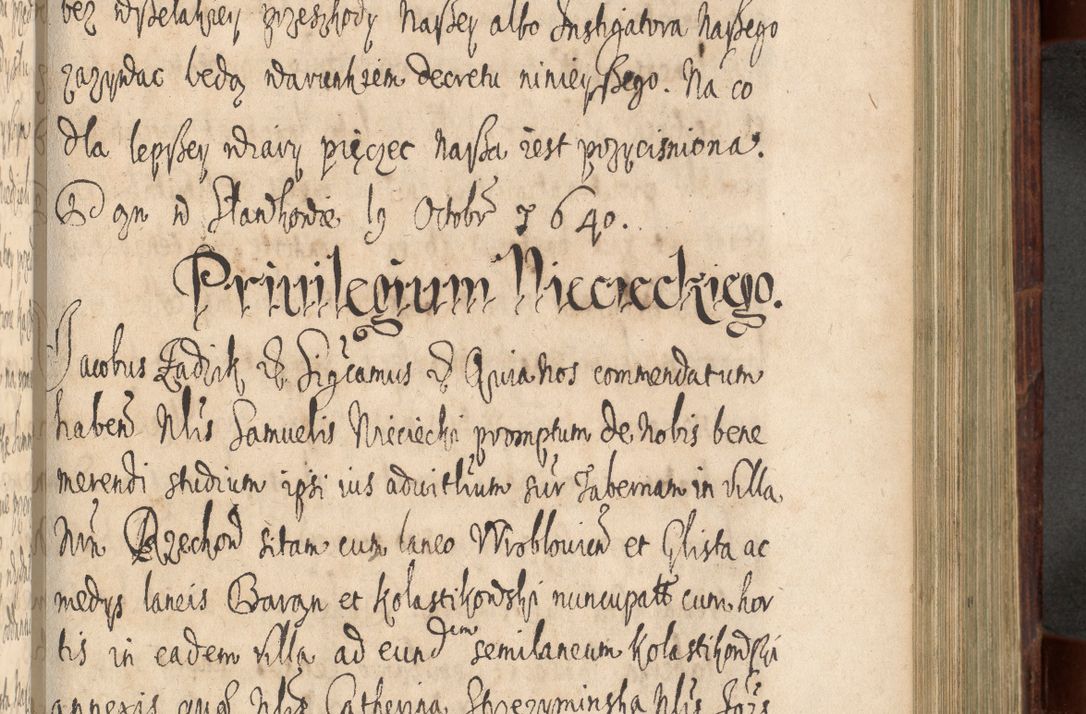 bez wszelakiey przeszkody naszey albo Instigatora naszego
zazywac bedą warunkiem decretu ninieyszego. Na co
dla lepszey wiary pięczec nasza iest przycisniona.
w Stawkowie 19 Octobr 1640.
Priuilegium Niecieckiego.
Jacobus Zadzik Sigcamus Quia nos commendatum
haben Nlis Samuelis Nieciecki promptum de nobis bene
merendi studium ipsi ius aduitlium sup Tabernam in villa
nrn Rzechow sitam cum laneo Wroblowien et Glista ac
medys laneis Baran et Kolastikowski nuncupatt cum hor
tis in eadem villa ad eundem semilaneum Kolastikowski
annexis quos Nlis Catherina Strezyminska Nlis